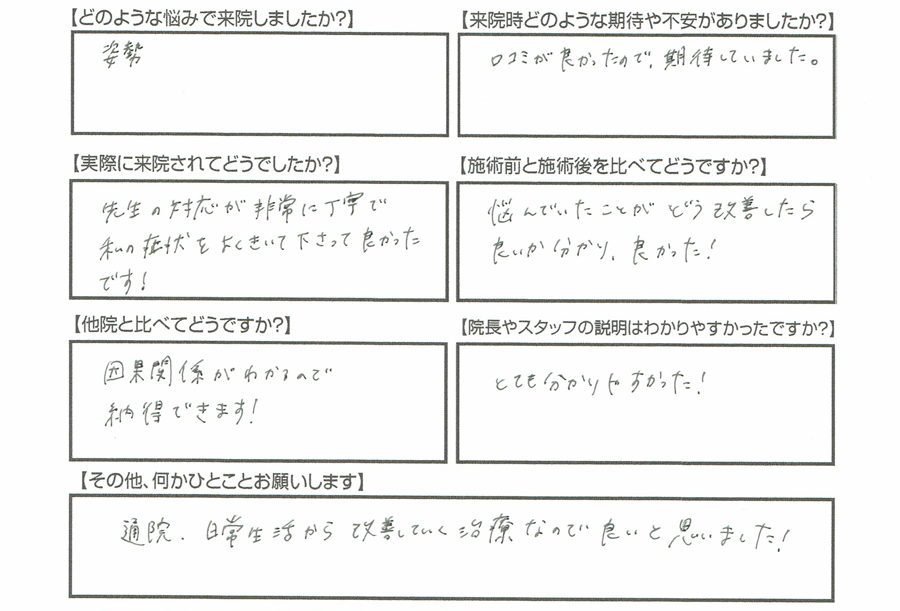 【どのような悩みで来院しましたか?】
姿勢
【来院時どのような期待や不安がありましたか?】
口コミが良かったので、期待していました。
【実際に来院されてどうでしたか?】
先生の対応が非常に丁寧で
私の症状をよくきいて下さって良かった
です!
【施術前と施術後を比べてどうですか?】
悩んでいたことがどう改善したら
良いか分かり、良かった!
【他院と比べてどうですか?】
因果関係がわかるので
納得できます!
【院長やスタッフの説明はわかりやすかったですか?】
とても分かりやすかった!
【その他、何かひとことお願いします】
通院、日常生活から改善していく治療なので良いと思いました!